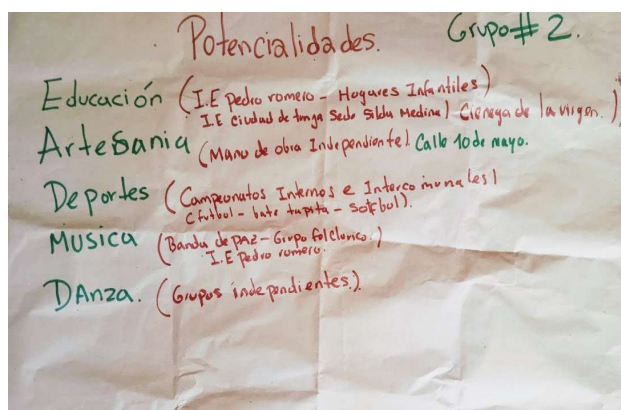 Potencialidades. Grupo # 2.
Educación (I.E pedro romero - Hogares Infantiles)
I.E ciudad de tunja Sede Silda Medina) Cienega de la virgen.)
Artesania (Mano de obra Independiente) Calle 10 de mayo.
Deportes (Campeonatos Internos e Intercomunales)
(futbol - bate tapita - Sofbol).
MUSICA (Banda de PAZ - Grupo folclorico.)
I.E Pedro romero.
DAnza. (Grupos independientes.)